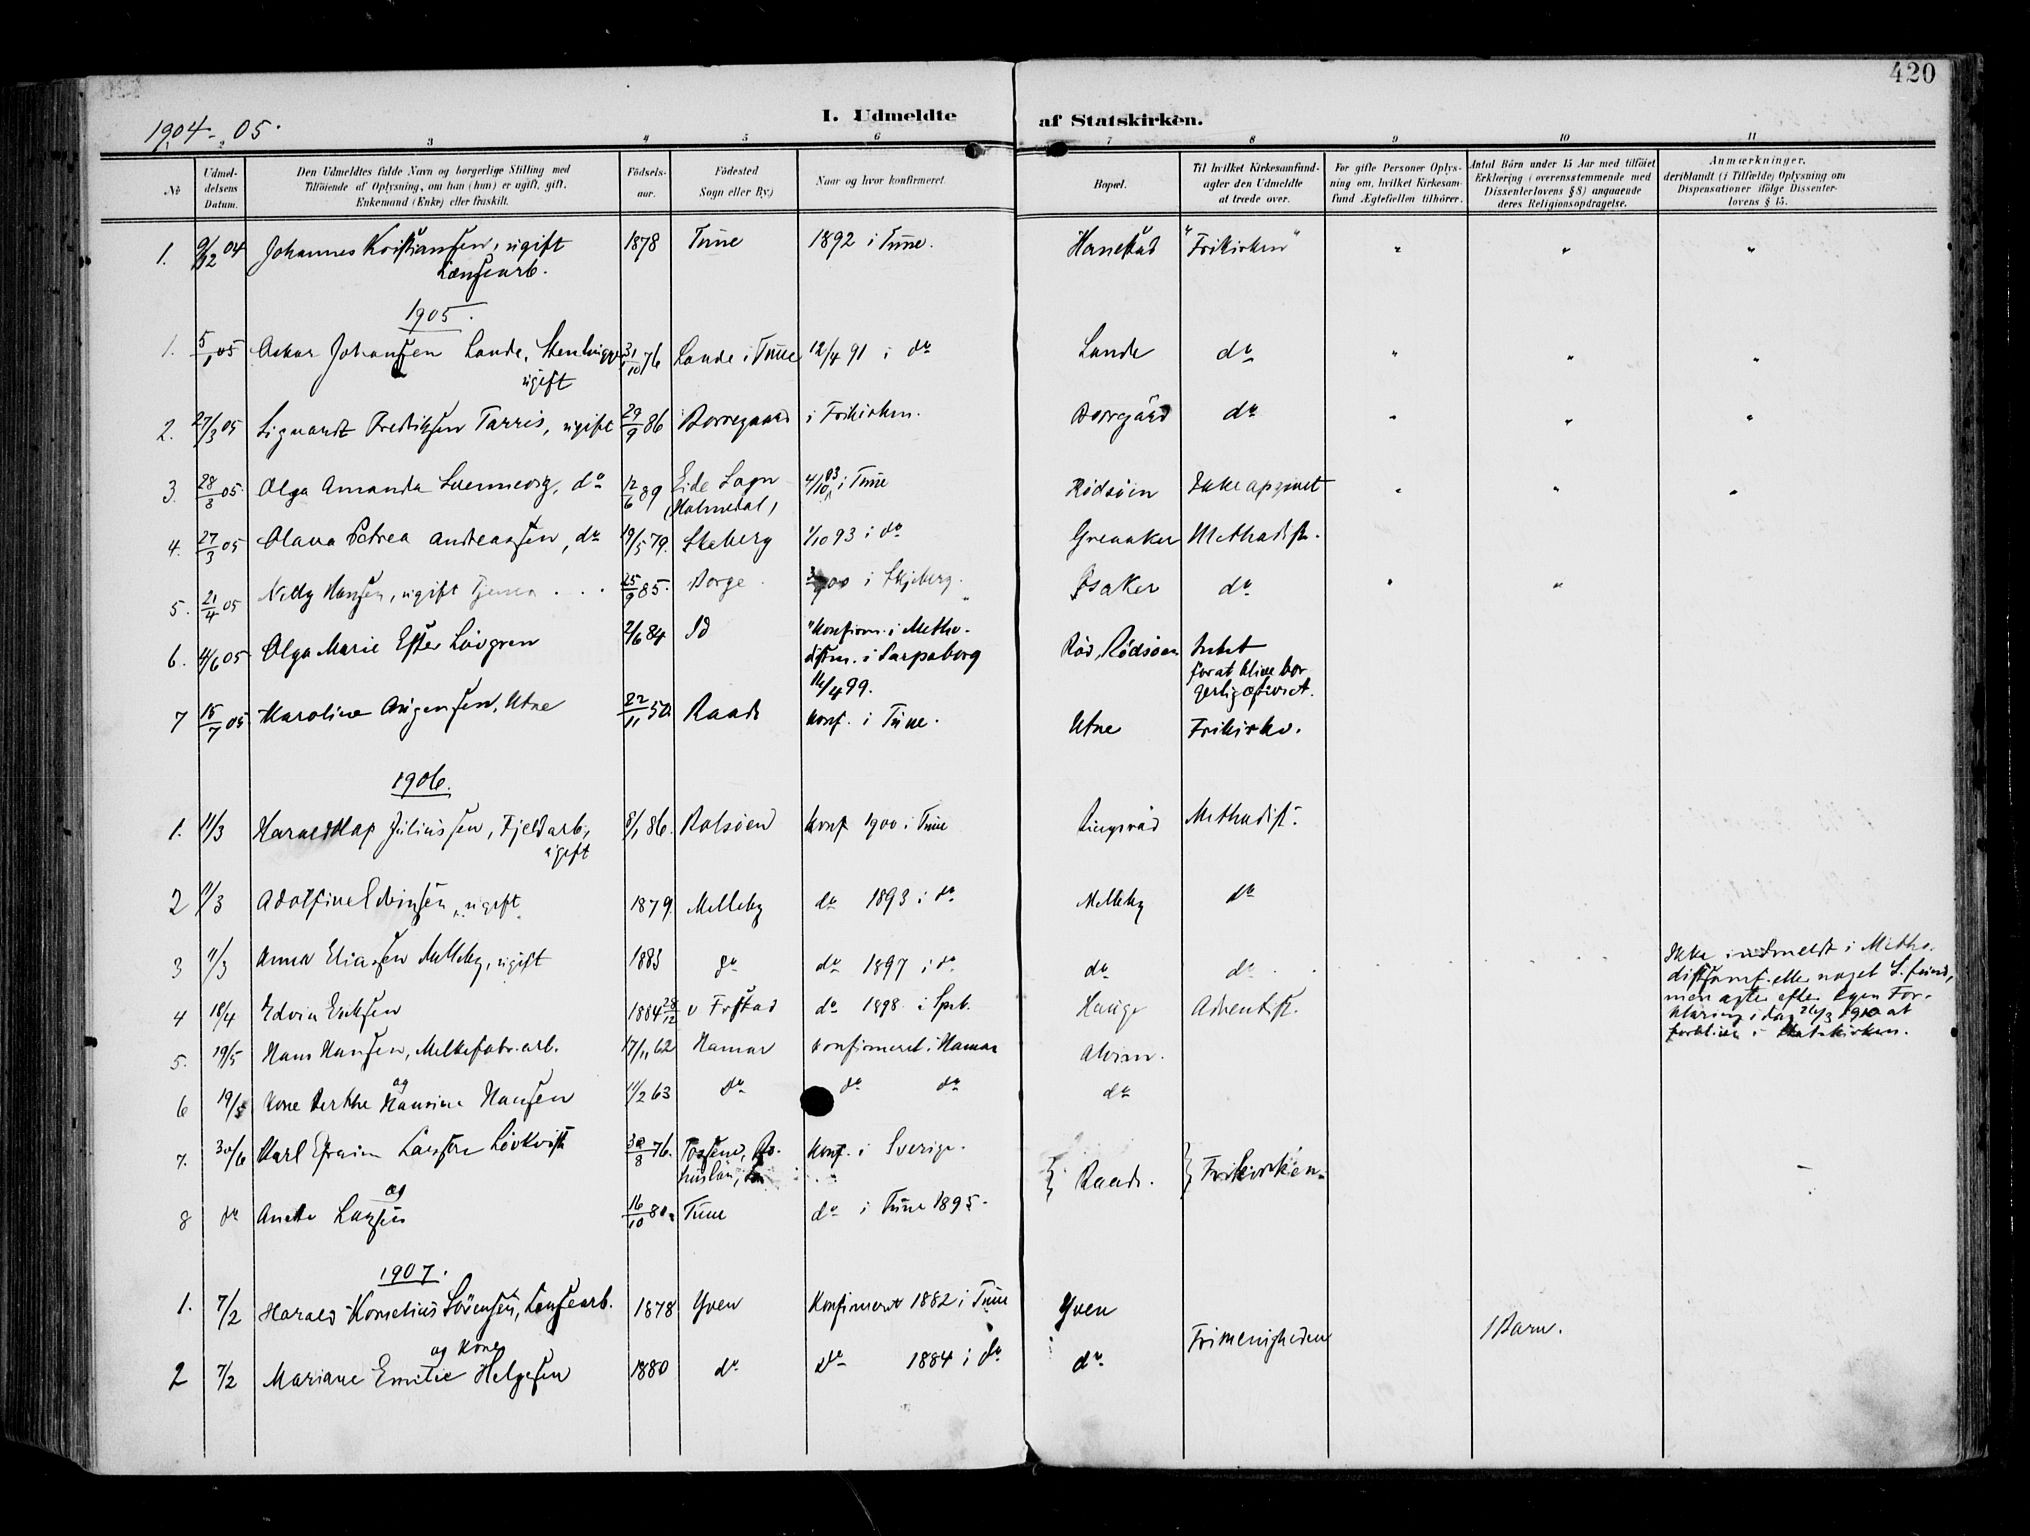 420
1904-05.
I. Udmeldte af Statskirken.
3 4 5 6 7 8 9 10 11
No
Udmel-
delsens
Datum.
Den Udmeldtes fulde Navn og borgerlige Stilling med
Tilføiende af Oplysning, om han (hun) er ugift, gift,
Enkemand (Enke) eller fraskilt.
Fødsels-
aar.
Fødested
Sogn eller By.)
Naar og hvor konfirmeret.
Bopæl.
Til hvilket Kirkesamfund
agter den Udmeldte
at træde over.
For gifte Personer Oplys-
ning om, hvilket Kirkesam-
fund Ægtefællen tilhører.
Antal Börn under 15 Aar med tilföiet
Erklæring (overensstemmende med
Dissenterlovens § 8) angaaende
deres Religionsopdragelse.
Anmærkninger,
deriblandt (i Tilfælde) Oplysning om
Dispensationer ifölge Dissenter-
lovens § 15.
1. 9/12 04 Johannes Kristiansen, ugift 1878 Tune 1892 i Tune. Hanestad "Frikirken" " " "
Lænsearb.
1905.
1. 5/1 05 Oskar Johansen Lande, Stenhugger 31/10 76 Lande i Tune 12/4 91 i do Lande do " " "
ugift
2. 27/3 05 Sigvardt Fredriksen Tarris, ugift 29/9 86 Borregaard i Frikirken. Borregård do " " "
3. 28/3 05 Olga Amanda do 12/6 89 Eide Sogn 4/10 03 i Tune Rødsøen Ikke opgivet " " "
(Holmedal)
4. 27/3 05 Olava Petrea Andreassen, do 19/5 79. Skeberg 1/10 93 i do Greaaker Methodist.
5. 21/4 05 Nelly Hansen, ugift 25/9 85. Borge. 00 i Skjeberg. Isaker do " "
6. 4/6 05 Olga Marie Ester Løvgren 2/6 84 Id "Konfirm. i Metho-
distm. i Sarpsborg
16/4 99.
Rød, Rødsøen Intet
for at blive bor-
gerlig ægteviet.
7 15/7 05 Karoline Utne 22/11 50. Raade Konf. i Tune. Utne Frikirke.
1906.
1. 11/3 Harald Juliussen, Fjeldarb, 8/1 86. Rolsøen Konf 1900 i Tune Methodist.
ugift
2 11/3 Adolfine Edvinsen, ugift 1879. Melleby do 1893 i do Melleby do
3 11/3 Anna Eliasen Melleby, ugift 1883 do do 1897 i do do do
Ikke indmeldt i Metho-
distsamf. eller noget
men agter efter egen For-
klaring i dag 26/3 1910 at
forblive i Statskirken.
4 18/4 Edvin Eriksen 1884 28/12 v Frstad do 1898 i Spsb. Hauge Adventist.
5. 19/5 Hans Hansen, Melkefabr.arb. 17/11 62 Hamar Konfirmeret i Hamar Alvim.
og
6 19/5 Kone Berthe Hansine Hansen 11/2 63 do do do do
7. 30/6 Karl Efraim Larsson Løvkvist 30/8 76. Tossene, Bo- Konf. i Sverige.
huslän,
} Raade. } Frikirken.
og
8 do Anette Larsen 16/10 80. Tune do i Tune 1895.
1907.
1. 7/2 Harald Kornelius Sørensen, Lænsearb. 1878 Yven Konfirmeret 1882 i Tune Yven
og Kone
Frimenigheden 1 Barn.
2 7/2 Mariane Emilie Helgesen 1880 do do 1884 i do do